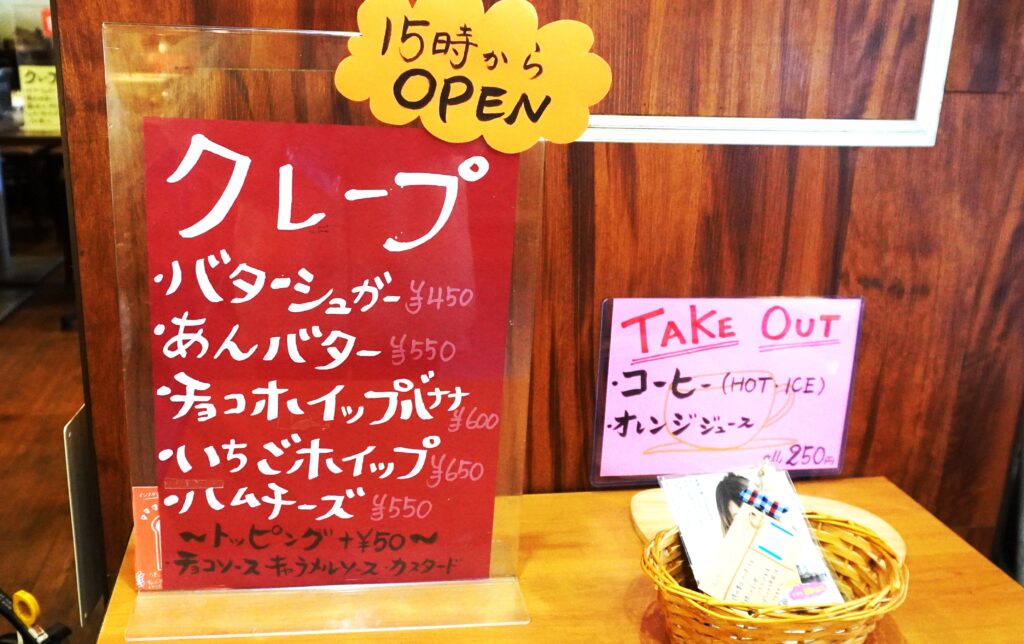 15時から
OPEN
クレープ
・バターシュガー ¥450
・あんバター ¥550
・チョコホイップバナナ ¥600
・いちごホイップ ¥650
・ハムチーズ ¥550
～トッピング+¥50～
・チョコソース・キャラメルソース・カスタード
TAKE OUT
・コーヒー(HOT・ICE)
・オレンジジュース
all 250円